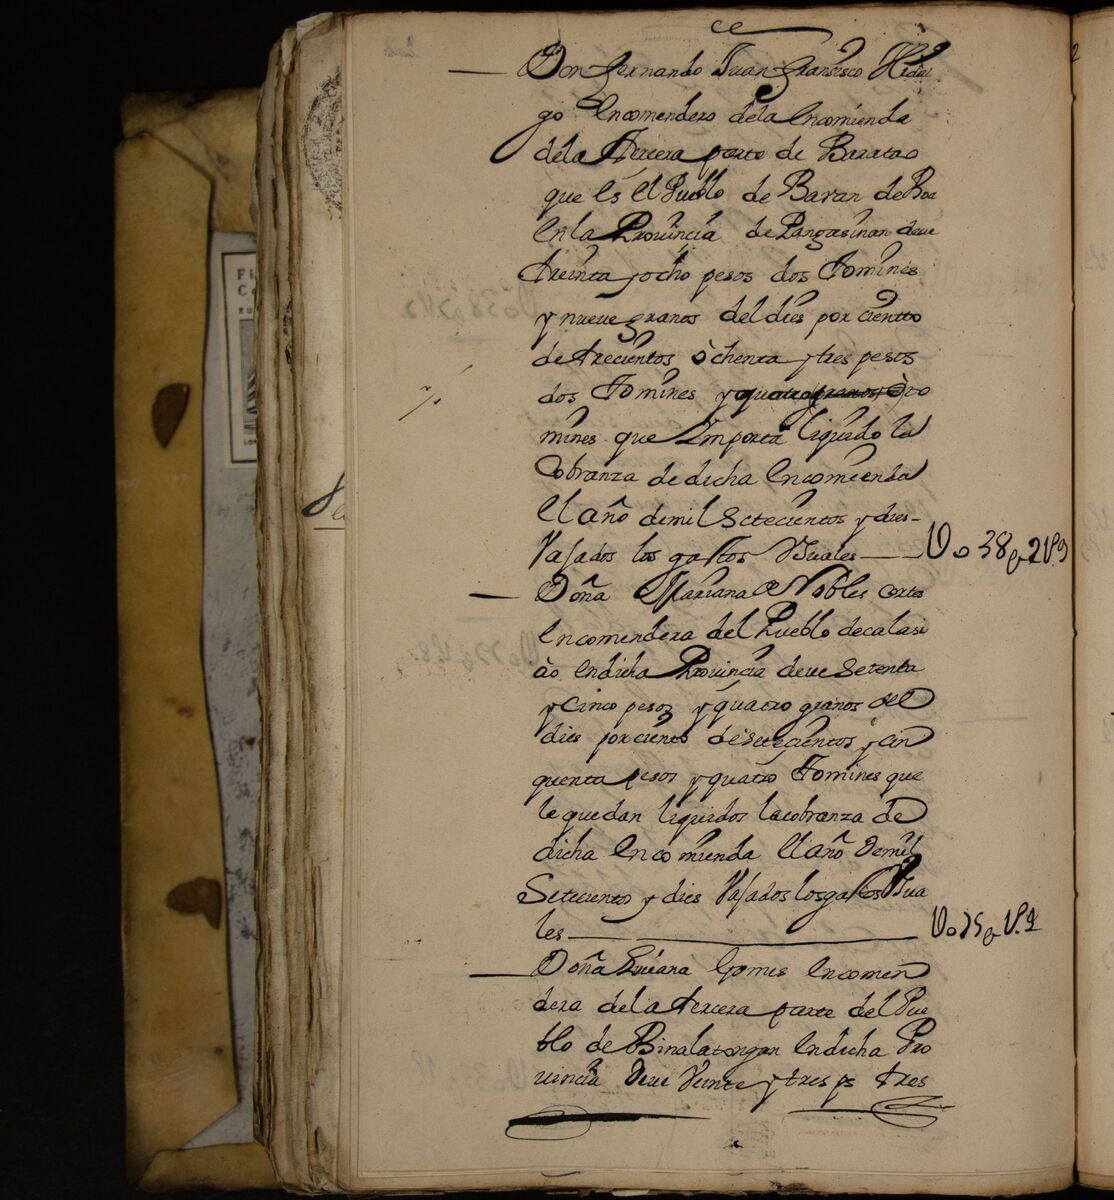 Don fernando Juan fransisco Hidal
go Encomendero dela Encomienda
dela tercera parte de Baratao
que Es El Pueblo de Bavan de Boa
En la Provincia de Pangasinan deve
treinta yocho pesos dos tomines
y nueve granos del dies por ciento
de trecientos ochenta y tres pesos
dos tomines y quatro
mines que Importa liquido la
Cobranza de dicha Encomienda
El año demil Setecientos y dies
Vajados los gastos Vsuales Vo 38 p 2 V. 9
Doña Mariana Nobles Cortes
Encomendera del Pueblo decalasi
ao Endicha Provincia deve Setenta
y Cinco pesos y quatro granos del
dies porciento deSetecientos y cin
quenta pesos y quatro tomines que
le quedan liquidos la cobranza de
dicha Encomienda El año demil
Setecientos y dies Vajados losgastos Vsua
les Vo 75 p V. 4
Doña Luciana Gomes Encomen
dera dela tercera parte del Pue
blo de Binalatongan Endicha Pro
vincia deve Veinte y tres ps tres